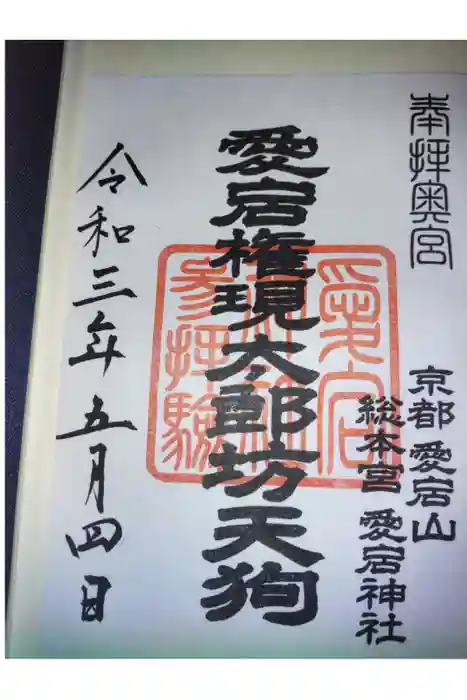 奉拝奥宮
京都 愛宕山
総本宮 愛宕神社
愛宕権現太郎坊天狗
愛宕
参拝験
令和三年五月四日